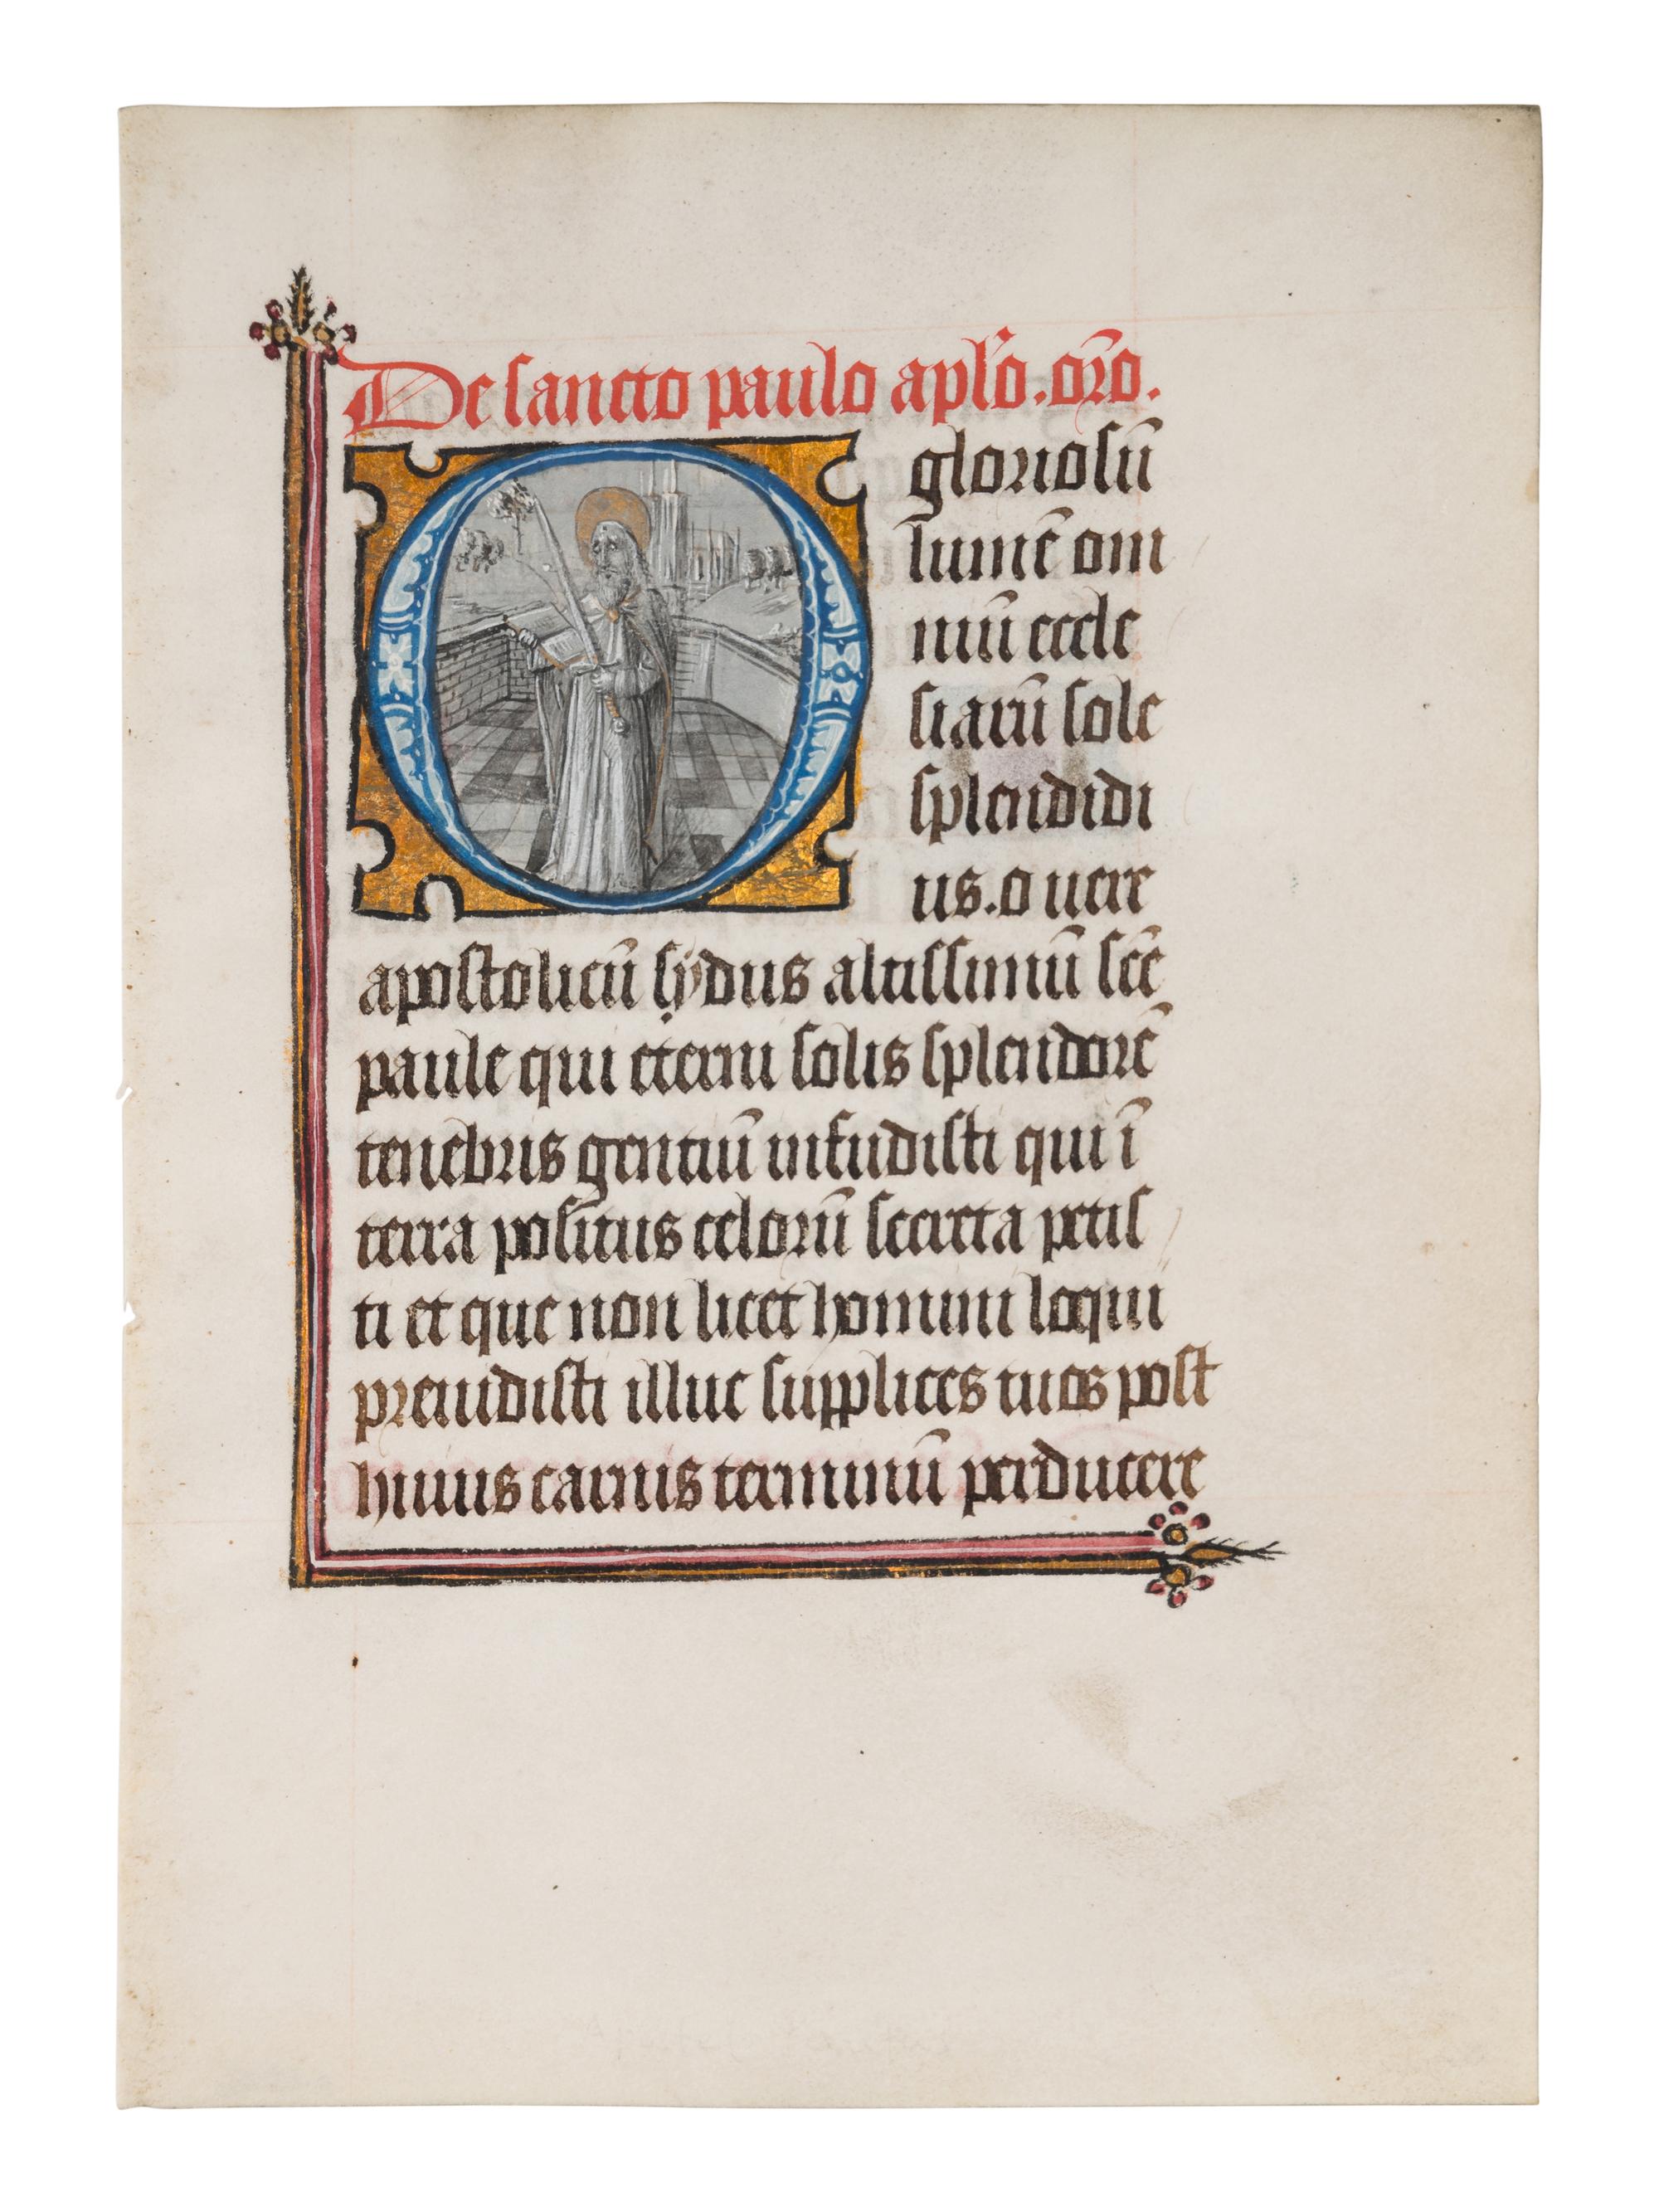 De sancto paulo apl̄o. or̄o.
O gloriosū
lumē om
niū eccle
siarū sole
splendidi
us. o uere
apostolicū sẏdus altissimū scē
paule qui eterni solis splendorē
tenebris gentiū infudisti qui ī
terra positus celorū secreta petis
ti et que non licet homini loqui
preuidisti illuc supplices tuos post
huius carnis terminū perducere